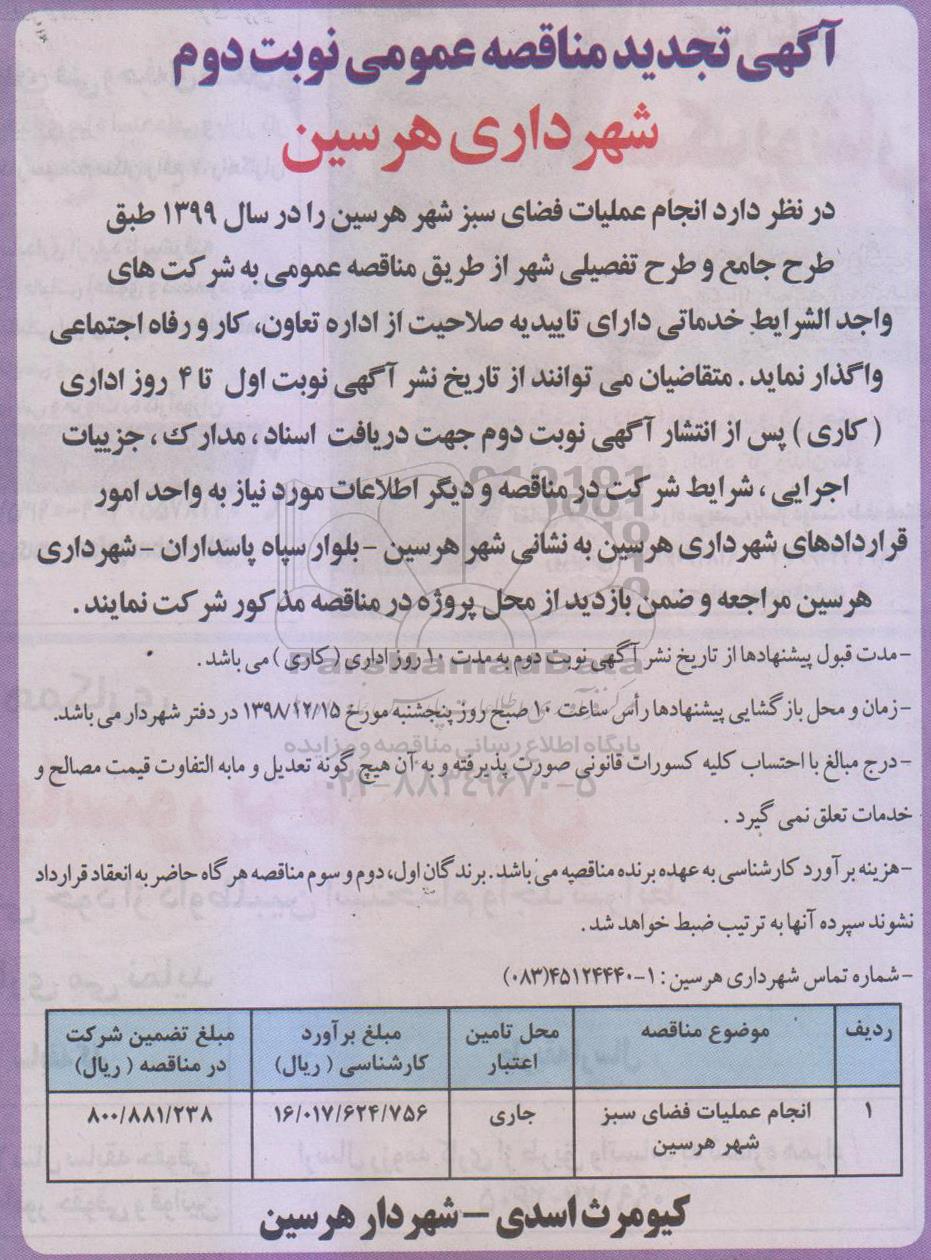 آگهی تجدید مناقصه عمومی نوبت دوم
شهرداری هرسین
در نظر دارد انجام عملیات فضای سبز شهر هرسین را در سال ۱۳۹۹ طبق
طرح جامع و طرح تفصیلی شهر از طریق مناقصه عمومی به شرکت های
واجد الشرایط خدماتی دارای تاییدیه صلاحیت از اداره تعاون، کار و رفاه اجتماعی
واگذار نماید . متقاضیان می توانند از تاریخ نشر آگهی نوبت اول تا ۴ روز اداری
( کاری ) پس از انتشار آگهی نوبت دوم جهت دریافت اسناد ، مدارک ، جزییات
اجرایی ، شرایط شرکت در مناقصه و دیگر اطلاعات مورد نیاز به واحد امور
قراردادهای شهرداری هرسین به نشانی شهر هرسین - بلوار سپاه پاسداران - شهرداری
هرسین مراجعه و ضمن بازدید از محل پروژه در مناقصه مذکور شرکت نمایند .
- مدت قبول پیشنهادها از تاریخ نشر آگهی نوبت دوم به مدت ۱۰ روز اداری ( کاری ) می باشد .
ParsNamadData
- زمان و محل بازگشایی پیشنهادها رأس ساعت ۱۰ صبح روز پنجشنبه مورخ ۱۳۹۸/۱۲/۱۵ در دفتر شهردار می باشد.
پایگاه اطلاع رسانی مناقصه و مزایده
- درج مبالغ با احتساب کلیه کسورات قانونی صورت پذیرفته و به آن هیچ گونه تعدیل و مابه التفاوت قیمت مصالح و
۰۲۱-۸۸۳۴۹۶۷۰-۵
خدمات تعلق نمی گیرد .
- هزینه برآورد کارشناسی به عهده برنده مناقصه می باشد . برندگان اول، دوم و سوم مناقصه هر گاه حاضر به انعقاد قرارداد
نشوند سپرده آنها به ترتیب ضبط خواهد شد .
- شماره تماس شهرداری هرسین : ۱-۴۵۱۲۴۴۴۰(۰۸۳)
ردیف موضوع مناقصه محل تامین اعتبار مبلغ برآورد کارشناسی ( ریال) مبلغ تضمین شرکت در مناقصه ( ریال)
۱ انجام عملیات فضای سبز شهر هرسین جاری ۱۶/۰۱۷/۶۲۴/۷۵۶ ۸۰۰/۸۸۱/۲۳۸
کیومرث اسدی – شهردار هرسین